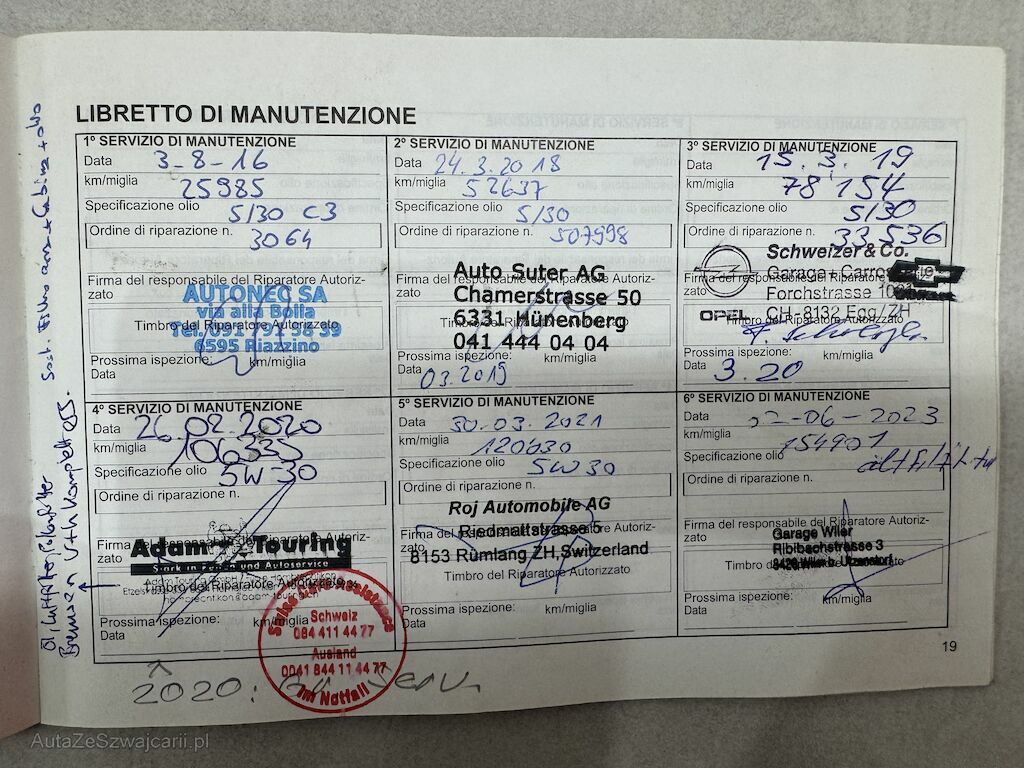 LIBRETTO DI MANUTENZIONE
1º SERVIZIO DI MANUTENZIONE
Data 3-8-16
km/miglia 25985
Specificazione olio 5/30 C3
Ordine di riparazione n. 3064
Firma del responsabile del Riparatore Autoriz-
zato
AUTONEC SA
via alla Bolla
Timbro del Riparatore Autorizzato
6595 Riazzino
Prossima ispezione: km/miglia
Data
2º SERVIZIO DI MANUTENZIONE
Data 24.3.2018
km/miglia 52637
Specificazione olio 5/30
Ordine di riparazione n. 507998
Firma del responsabile del Riparatore Autoriz-
zato
Auto Suter AG
Chamerstrasse 50
6331 Hünenberg
041 444 04 04
Timbro del Riparatore Autorizzato
Prossima ispezione: km/miglia
Data 03.2019
3º SERVIZIO DI MANUTENZIONE
Data 15.3.19
km/miglia 78'154
Specificazione olio 5/30
Ordine di riparazione n. 33536
Schweizer & Co.
Firma del responsabile del Riparatore Autoriz-
zato
Garage + Carrosserie
Forchstrasse
OPEL CH-8132 Egg/ZH
Timbro del Riparatore Autorizzato
Prossima ispezione: km/miglia
Data 3.20
4º SERVIZIO DI MANUTENZIONE
Data 26.02.2020
km/miglia 106335
Specificazione olio 5W-30
Ordine di riparazione n.
Firma del responsabile del Riparatore Autoriz-
zato
Adam Touring
Stark in Reifen und Autoservice
Timbro del Riparatore Autorizzato
Prossima ispezione: km/miglia
Data
Swiss Assistance
Schweiz
084 411 44 77
Ausland
0041 844 11 44 77
im Notfall
2020:
5º SERVIZIO DI MANUTENZIONE
Data 30.03.2021
km/miglia 120630
Specificazione olio 5W30
Ordine di riparazione n.
Roj Automobile AG
Firma del responsabile del Riparatore Autoriz-
zato
Riedmattstrasse 5
8153 Rümlang ZH, Switzerland
Timbro del Riparatore Autorizzato
Prossima ispezione: km/miglia
Data
6º SERVIZIO DI MANUTENZIONE
Data 02-06-2023
km/miglia 154901
Specificazione olio
Ordine di riparazione n.
Firma del responsabile del Riparatore Autoriz-
zato
Garage Wiler
Ribibachstrasse 3
Timbro del Riparatore Autorizzato
Prossima ispezione: km/miglia
Data
19
AutaZeSzwajcarii.pl